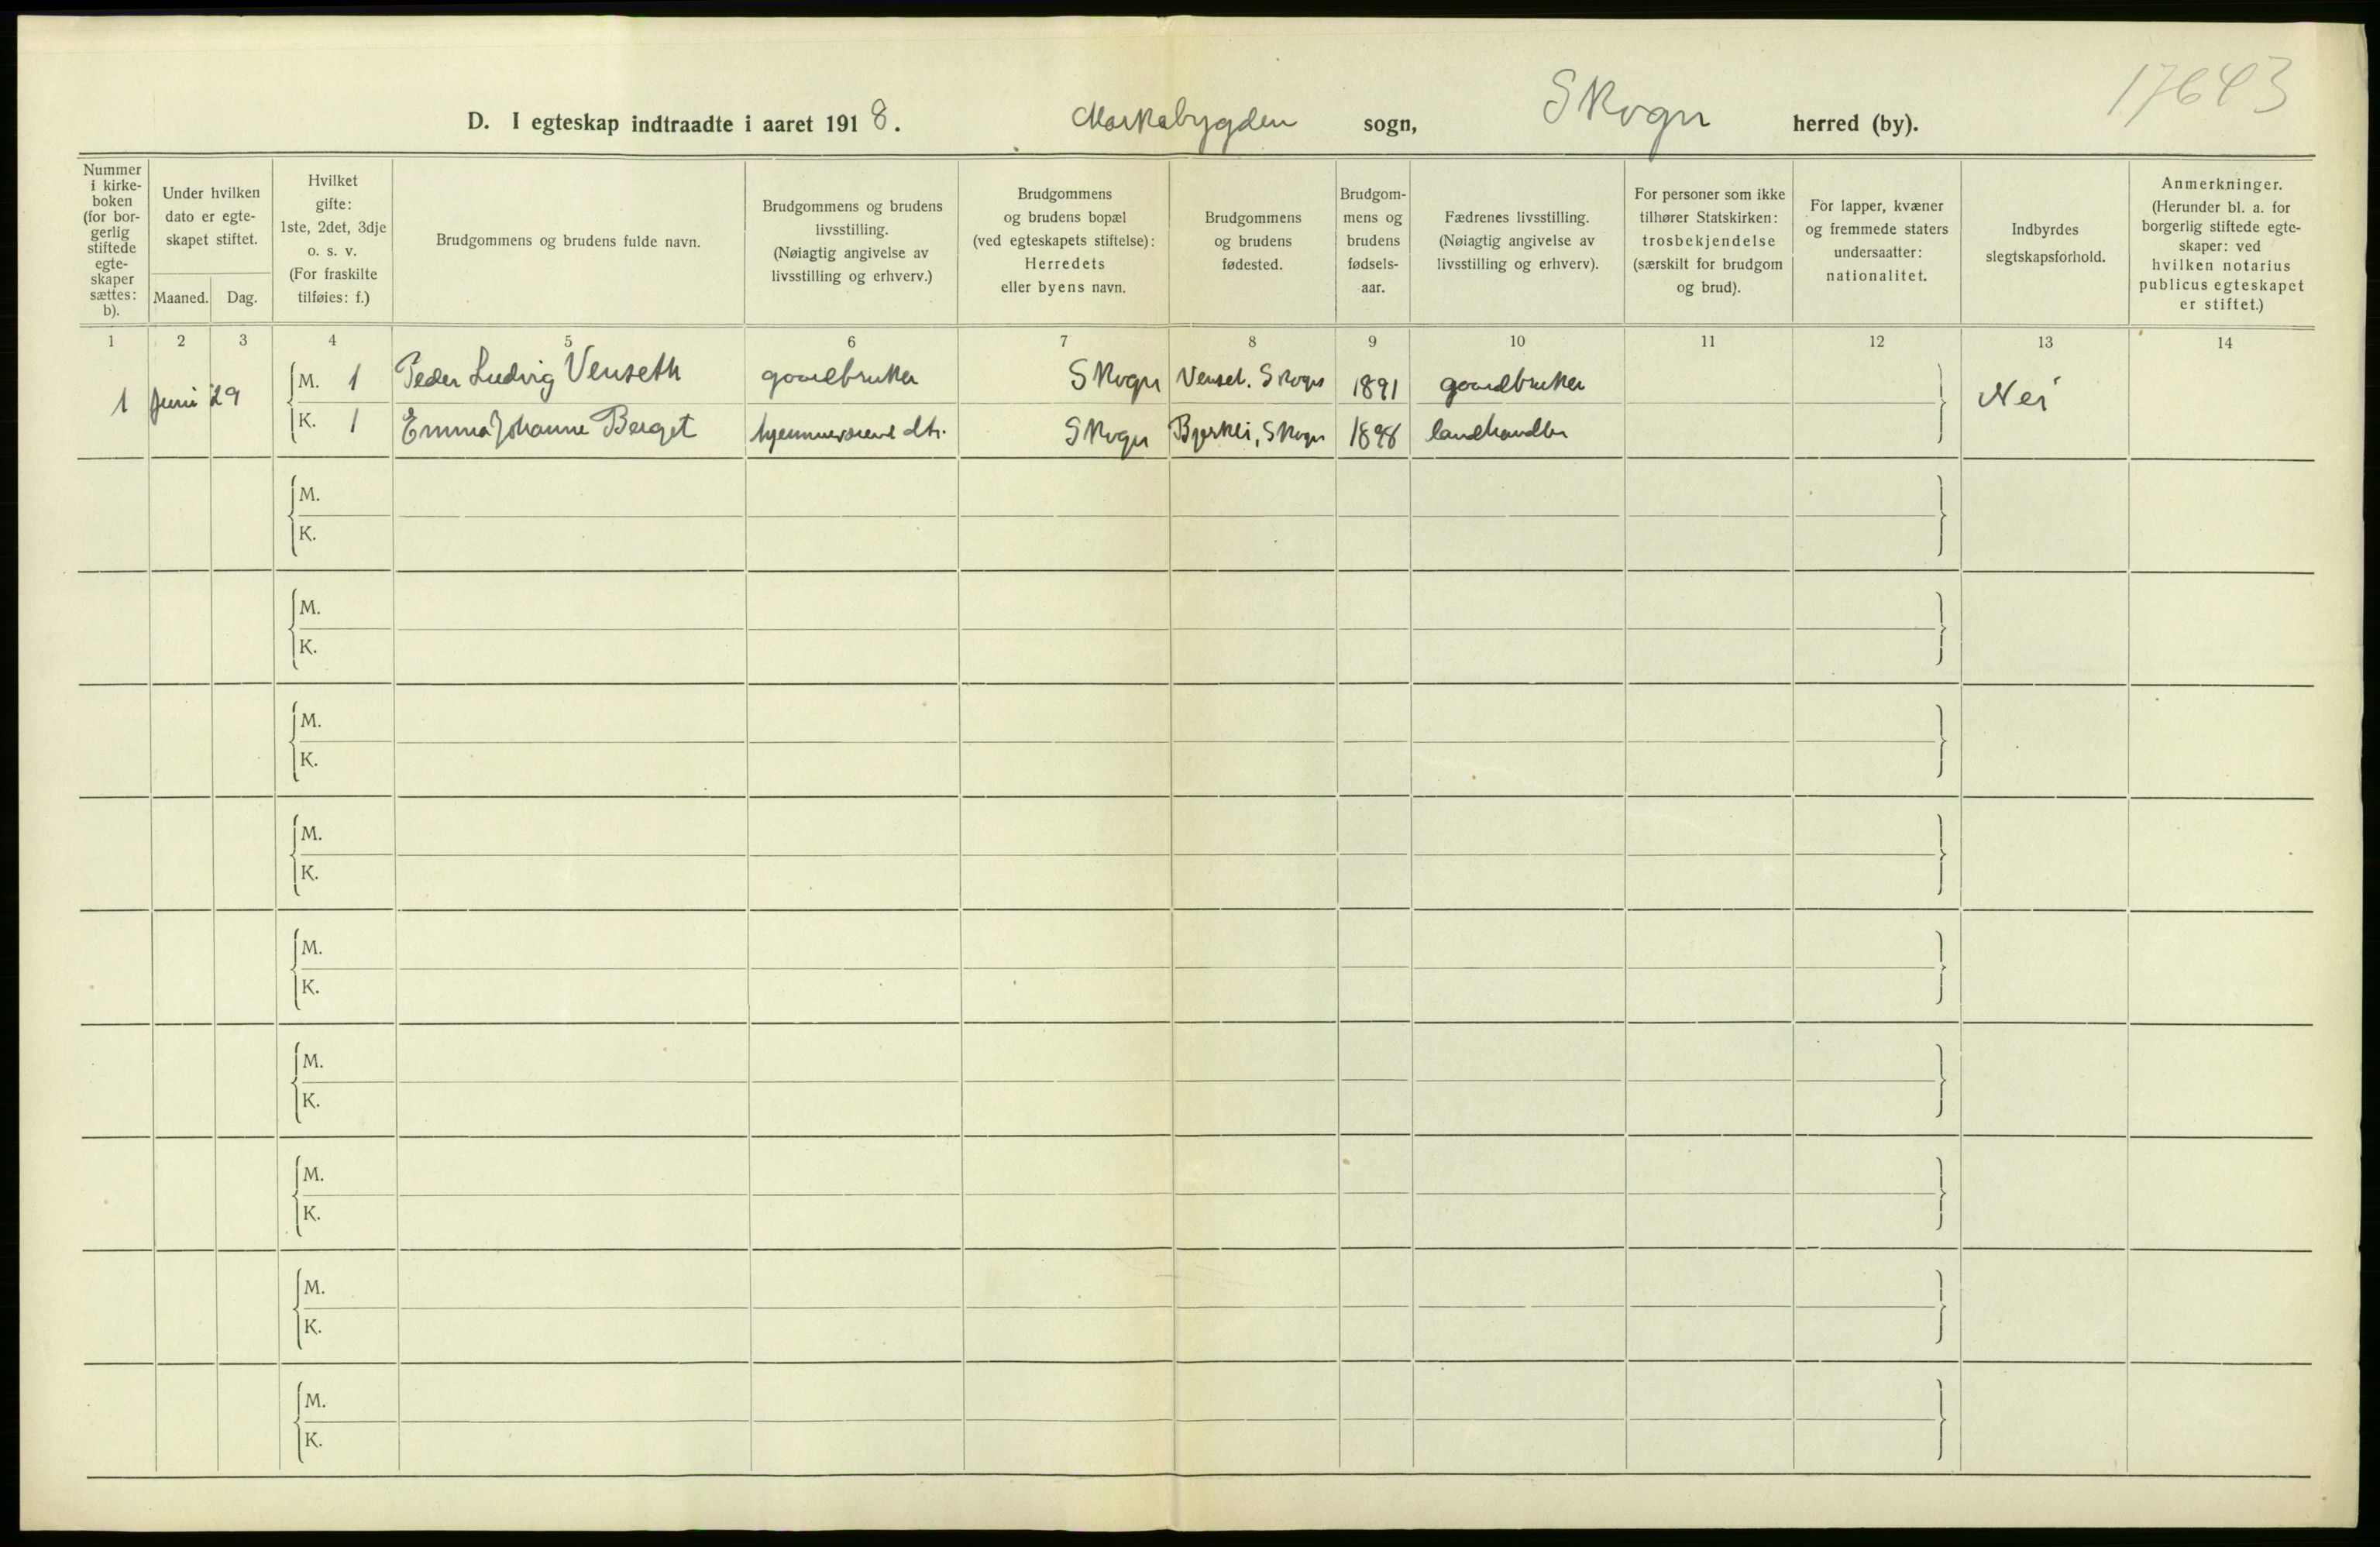 17643
D. I egteskap indtraadte i aaret 1918. Markabygden sogn, Skogn herred (by).
Nummer
i kirke-
boken
(for bor-
gerlig
stiftede
egte-
skaper
sættes:
b).
Under hvilken
dato er egte-
skapet stiftet.
Maaned. Dag.
Hvilket
gifte:
1ste, 2det, 3dje
o. s. v.
(For fraskilte
tilføies: f.)
Brudgommens og brudens fulde navn.
Brudgommens og brudens
livsstilling.
(Nøiagtig angivelse av
livsstilling og erhverv.)
Brudgommens
og brudens bopæl
(ved egteskapets stiftelse):
Herredets
eller byens navn.
Brudgommens
og brudens
fødested.
Brudgom-
mens og
brudens
fødsels-
aar.
Fædrenes livsstilling.
(Nøiagtig angivelse av
livsstilling og erhverv).
For personer som ikke
tilhører Statskirken:
trosbekjendelse
(særskilt for brudgom
og brud).
For lapper, kvæner
og fremmede staters
undersaatter:
nationalitet.
Indbyrdes
slegtskapsforhold.
Anmerkninger.
(Herunder bl. a. for
borgerlig stiftede egte-
skaper: ved
hvilken notarius
publicus egteskapet
er stiftet.)
1 2 3 4 5 6 7 8 9 10 11 12 13 14
1 Juni 29 M. 1 Peder Ludvig Venseth gaardbruker Skogn Venset. Skogn 1891 gaardbruker Nei
K. 1 Emma Johanne Berget hjemmeværende dtr. Skogn Bjerkli, Skogn 1898 landhandler
M.
K.
M.
K.
M.
K.
M.
K.
M.
K.
M.
K.
M.
K.
M.
K.
M.
K.